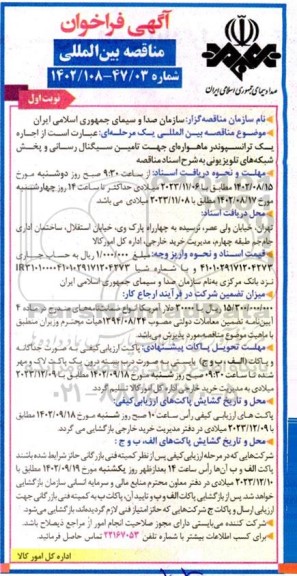 آگهی فراخوان
مناقصه بین‌المللی
شماره ۱۴۰۲/۱۰۸-۴۷/۰۳
صدا و سیمای جمهوری اسلامی ایران
نوبت اول
نام سازمان مناقصه‌گزار: سازمان صدا و سیمای جمهوری اسلامی ایران
موضوع مناقصه بین المللی یک مرحله‌ای: عبارت است از اجاره
یک ترانسپوندر ماهواره‌ای جهت تامین سیگنال رسانی و پخش
شبکه‌های تلویزیونی به شرح اسناد مناقصه
مهلت و نحوه دریافت اسناد: از ساعت ۹:۳۰ صبح روز دوشنبه مورخ
۱۴۰۲/۰۸/۱۵ مطابق با ۲۰۲۳/۱۱/۰۶ میلادی حداکثر تا ساعت ۱۴ روز چهارشنبه
مورخ ۱۴۰۲/۰۸/۱۷ مطابق با ۲۰۲۳/۱۱/۰۸ میلادی می باشد
محل دریافت اسناد:
تهران، خیابان ولی عصر، نرسیده به چهارراه پارک وی، خیابان استقلال، ساختمان اداری
جام جم طبقه چهارم، مدیریت خرید خارجی، اداره کل امور کالا
قیمت اسناد و نحوه واریز وجه: مبلغ ۱/۰۰۰/۰۰۰ ریال به حساب جاری
نزد بانک مرکزی به‌نام سازمان صدا و سیمای جمهوری اسلامی ایران
میزان تضمین شرکت در فرآیند ارجاع کار:
آیین‌نامه تضمین معاملات دولتی مصوب ۱۳۹۴/۰۸/۲۴ هیات محترم وزیران منطبق
با ماهیت موضوع مناقصه مورد پذیرش می‌باشد
مهلت تحویل پاکات پیشنهادی: پاکت ارزیابی کیفی به صورت جداگانه
و پاکات (الف، ب و ج)
ساعت ۹:۳۰ صبح روز شنبه مورخ ۱۴۰۲/۰۹/۱۸ مطابق با ۲۰۲۳/۱۲/۰۹
میلادی به مدیریت خرید خارجی اداره کل امور کالا تسلیم گردد
محل و تاریخ گشایش پاکت‌های ارزیابی کیفی:
پاکت های ارزیابی کیفی رأس ساعت ۱۰ صبح روز شنبه مورخ ۱۴۰۲/۰۹/۱۸ مطابق
با ۲۰۲۳/۱۲/۰۹ میلادی در دفتر مدیریت خرید خارجی بازگشایی می گردد
محل و تاریخ گشایش پاکت‌های الف، ب و ج:
شرکت‌هایی که در مرحله ارزیابی کیفی پس از نظر کمیته فنی بازرگانی حائز شرایط شده باشند
پاکت الف و ب آن‌ها رأس ساعت ۱۴ بعدازظهر روز یکشنبه مورخ ۱۴۰۲/۰۹/۱۹ مطابق با
۲۰۲۳/۱۲/۱۰ میلادی در دفتر معاون محترم منابع مالی و سرمایه انسانی سازمان بازگشایی
خواهد شد. پس از بازگشایی پاکات الف و ب و تایید آن، پاکات ب به کمیته فنی بازرگانی جهت
ارزیابی ارسال و پاکات ج شرکت‌هایی که حائز امتیاز فنی لازم گردیده‌اند، بازگشایی می‌شود.
شرکت کننده می‌بایستی دارای مجوز صلاحیت انجام امور از مراجع ذیصلاح باشد.
برای کسب اطلاعات بیشتر با شماره تلفن ۲۲۱۶۷۰۵۳ تماس حاصل فرمائید.
اداره کل امور کالا